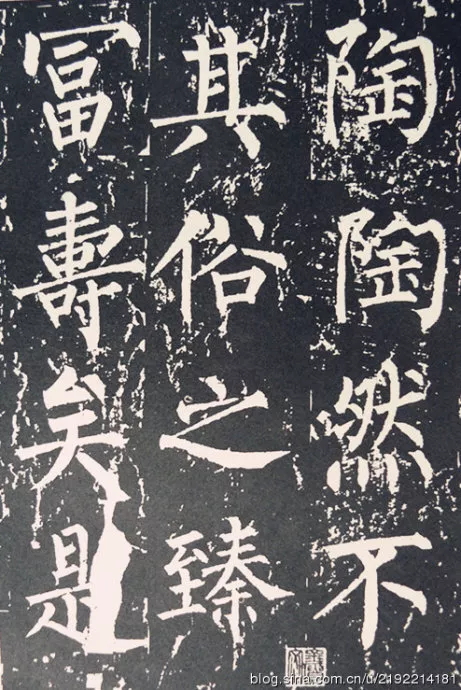 陶陶然不
其俗之臻
冨壽矣是
blog.sina.com.cn/u/2192214181